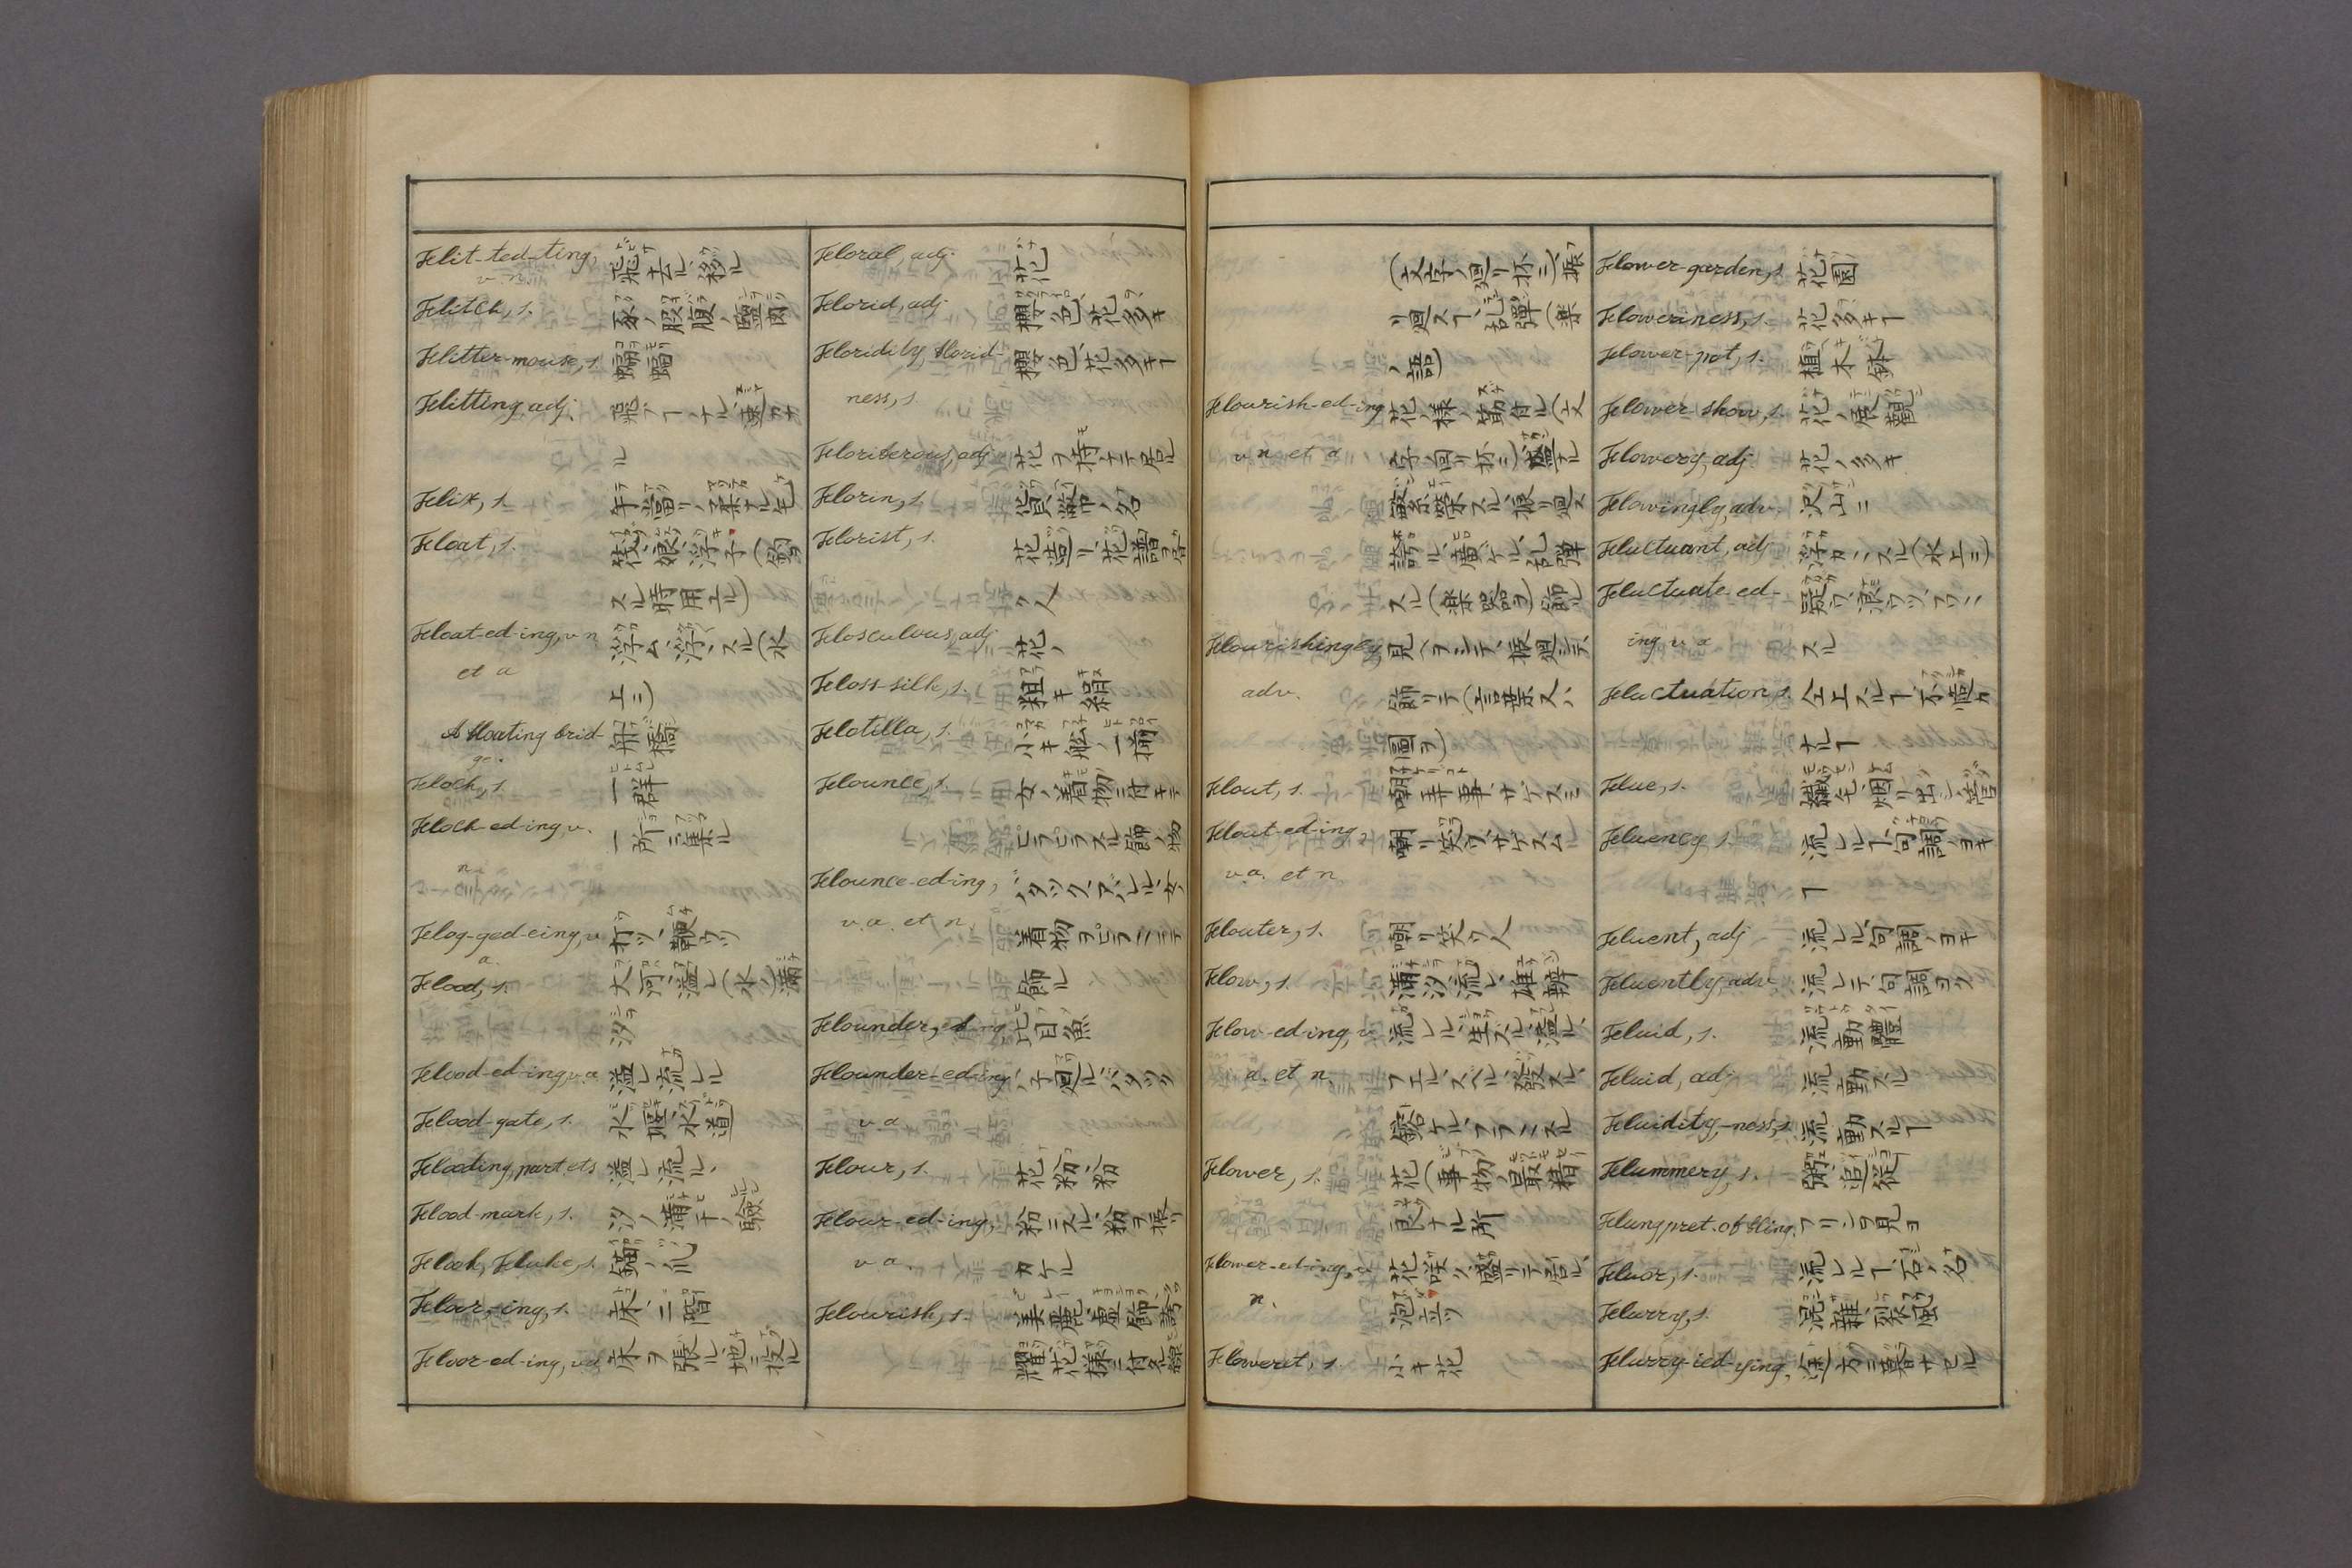 Flit-ted-ting, 飛去ル、移ル
v. n.
Flitch, s. 豕ノ股腹ノ鹽肉
Flitter-mouse, s. 蝙蝠
Flitting, adj. 飛ブ
ル
Flix, s.
Float, s. 筏、浪、浮子(釣
スル時用エル)
Float-ed-ing, v n 浮ム、浮、スル(水
et a 上ニ)
A floating brid- 舟橋
ge.
Flock, s. 一群
Flock-ed-ing, v. 一所ニ集ル
n
Flog-ged-eing, v. 打ツ、鞭ウツ
a.
Flood, s. 大河、溢レ(水ノ)満
汐
Flood-ed-ing, v.a 溢レ流レル
Flood-gate, s. 水堰、水道
Flooding, part ets 溢レ流ル、
Flood-mark, s. 汐ノ満干ノ験
Flook, Fluke, s. 錨ノ爪
Floor,-ing, s. 床、二階
Floor-ed-ing, va 床ヲ張ル、地ニ投ル
Floral, adj. 花
Florid, adj. 櫻色、花多キ
Floridity, florid- 櫻色、花多キ
ness, s
Floriferous, adj 花ヲ持チテ居ル
Florin, s. 貨幣ノ名
Florist, s. 花造リ、花譜ヲ
ク人
Flosculous, adj 花ノ
Floss-silk, s. 粗キ絹
Flotilla, s. 小キ舩ノ一揃
Flounce, s. 女ノ着物ニ付キテ
ピラピラスル飾ノ物
Flounce-ed-ing, バタツク、アバレル、女
v. a. et n. 着物ヲピラニテ
飾ル
Flounder, 比目魚
Flounder-ed-ing バタツク
v a
Flour, s. 花粉、粉
Flour-ed-ing, 粉ニスル、粉ヲ振ッ
v a. カケル
Flourish, s. 美麗、虚飾、誇
耀、花様ニ付
(文字ノ廻リ抔ニ)振
リ廻ス 乱弾(楽
ノ語)
Flourish-ed-ing 花ノ様ノ筋付ル(文
v n et a 字ノ廻リ抔ニ)盛ナル
繁榮スル、振リ廻ス
誇ル、廣ゲル、乱弾
スル(楽器ヲ)飾ル
Flourishingly, 見 テ、振廻シテ、
adv. 飾リテ(言葉又ハ
圖ヲ)
Flout, s. 嘲弄事、サゲスミ
Flout-ed-ing, 嘲リ笑ウ、サゲスム
v.a. et n
Flouter, s. 嘲リ笑ウ人
Flow, s. 満汐、流レ、雄辯
Flow-ed-ing, v 流レル、生ズル、溢ル、
a. et n. フエル、スベル、發スル、
鎔ケル、フラヽスル
Flower, s. 花(事物ノ)最精
良ナル所
Flower-ed-ing, v 花咲ク、盛リテ居ル、
n. 泡立ツ
Floweret, s. 小キ花
Flower-garden, s. 花園
Floweriness, s. 花多キ
Flower-pot, s. 植木鉢
Flower show, s. 花ノ展観
Flowery, adj 花ノ多キ
Flowingly, adv. 沢山ニ
Fluctuant, adj 浮カヽスル(水上ニ)
Fluctuate-ed- 疑ウ、浪ウツ、フワヽ
ing, v. n スル
Fluctuation, s. 仝上スル 不
ナル
Flue, s. 纎毛、烟リ出シノ管
Fluency s. 流レル 句調ノヨキ
Fluent, adj 流レル、句調ノヨキ
Fluently, adv 流レテ、句調ヨク
Fluid, s. 流動體
Fluid, adj 流動スル
Fluidity,-ness, s. 流動スル
Flummery, s. 粥、追従
Flung pret. of fling. フリング見ヨ
Fluor, s. 流レル 石ノ名
Flurry, s. 混雜、烈風
Flurry-ied-ying,